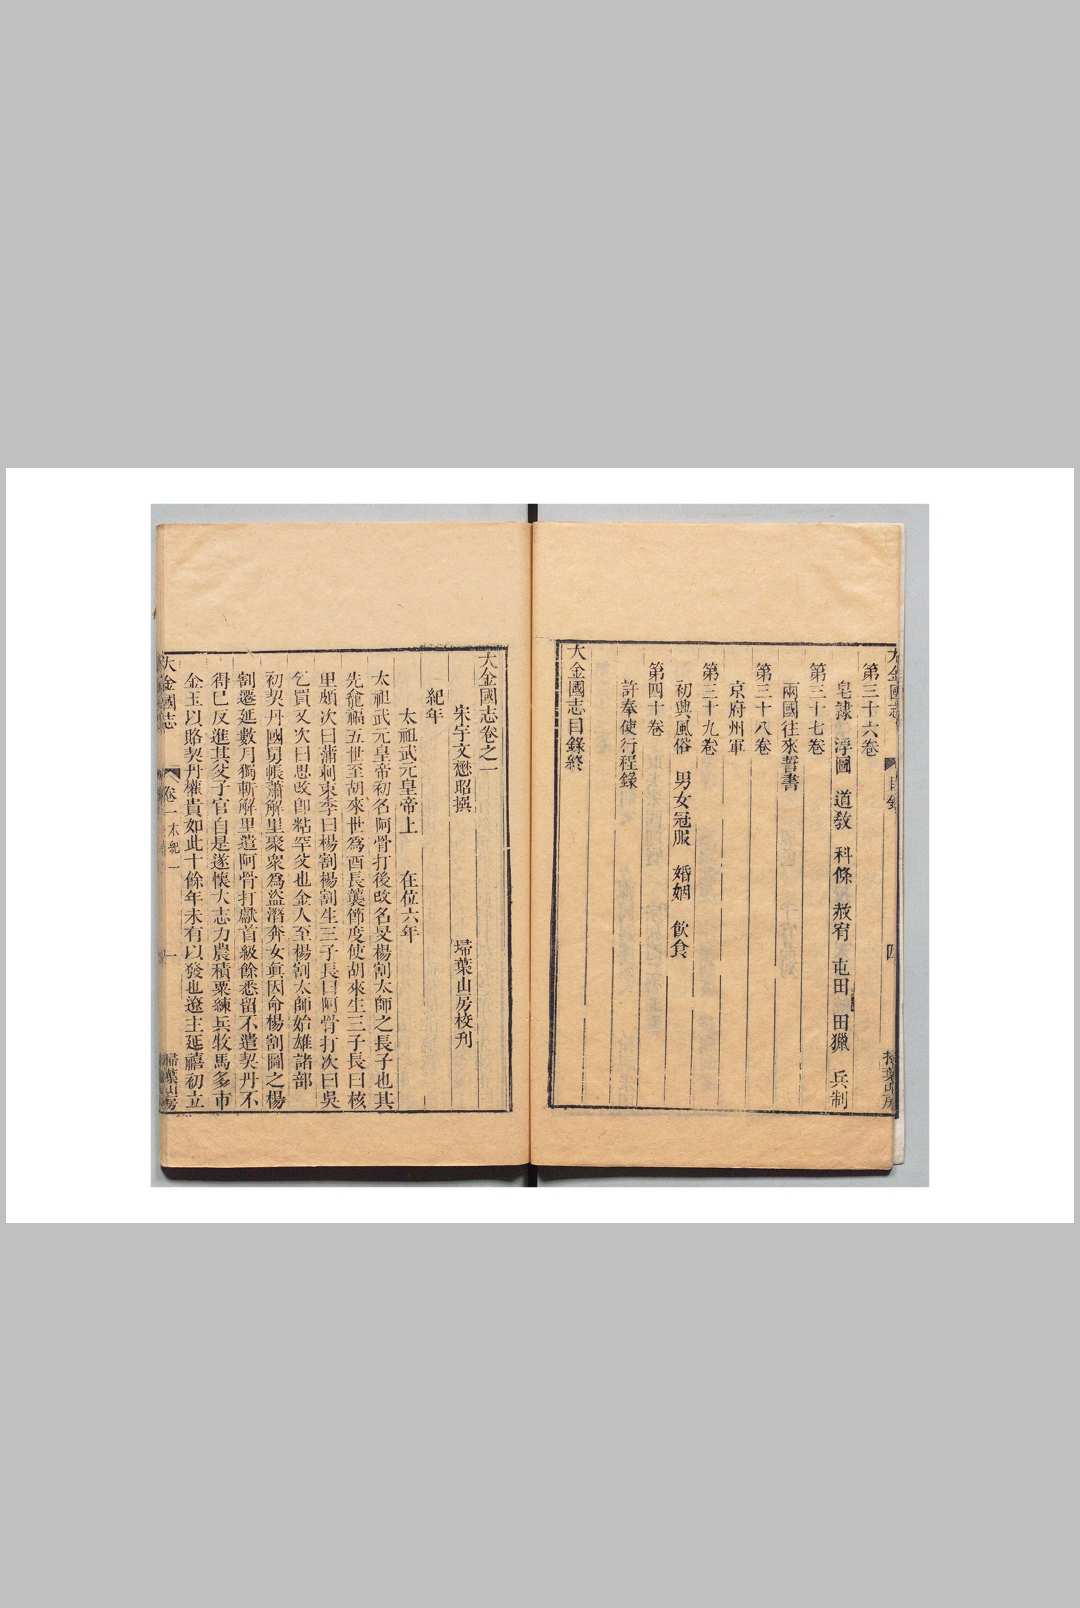 大金國志
目錄
四
掃葉山房
第三十六卷
皂隸　浮圖　道教　科條　赦宥　屯田　田獵　兵制
第三十七卷
兩國往來誓書
第三十八卷
京府州軍
第三十九卷
初興風俗　男女冠服　婚姻　飲食
第四十卷
許奉使行程錄
大金國志目錄終
大金國志卷之一
宋宇文懋昭撰　掃葉山房校刋
紀年
太祖武元皇帝上　在位六年
太祖武元皇帝初名阿骨打後改名旻楊割太師之長子也其
先龕福五世至胡來世爲酋長襲節度使胡來生三子長曰核
里頗次曰蒲剌束季曰楊割楊割生三子長曰阿骨打次曰吳
乞買又次曰思改卽粘罕父也金人至楊割太師始雄諸部
初契丹國舅帳蕭解里聚衆爲盜潛奔女眞因命楊割圖之楊
割遷延數月獨斬解里遣阿骨打獻首級餘悉留不遣契丹不
得已反進其父子官自是遂懷大志力農積粟練兵牧馬多市
金玉以賂契丹權貴如此十餘年未有以發也遼主延禧初立
大金國志
卷一
一
掃葉山房